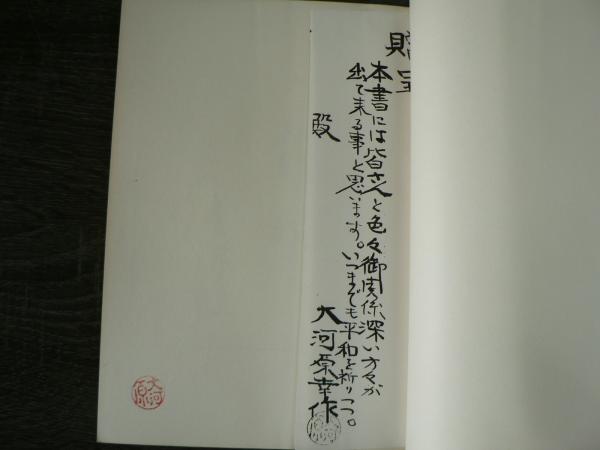 贈
本書には皆さんと色々御関係深い方々が
出て来る事と思います。いつまでも平和を祈りつつ。
大河原幸作
殿